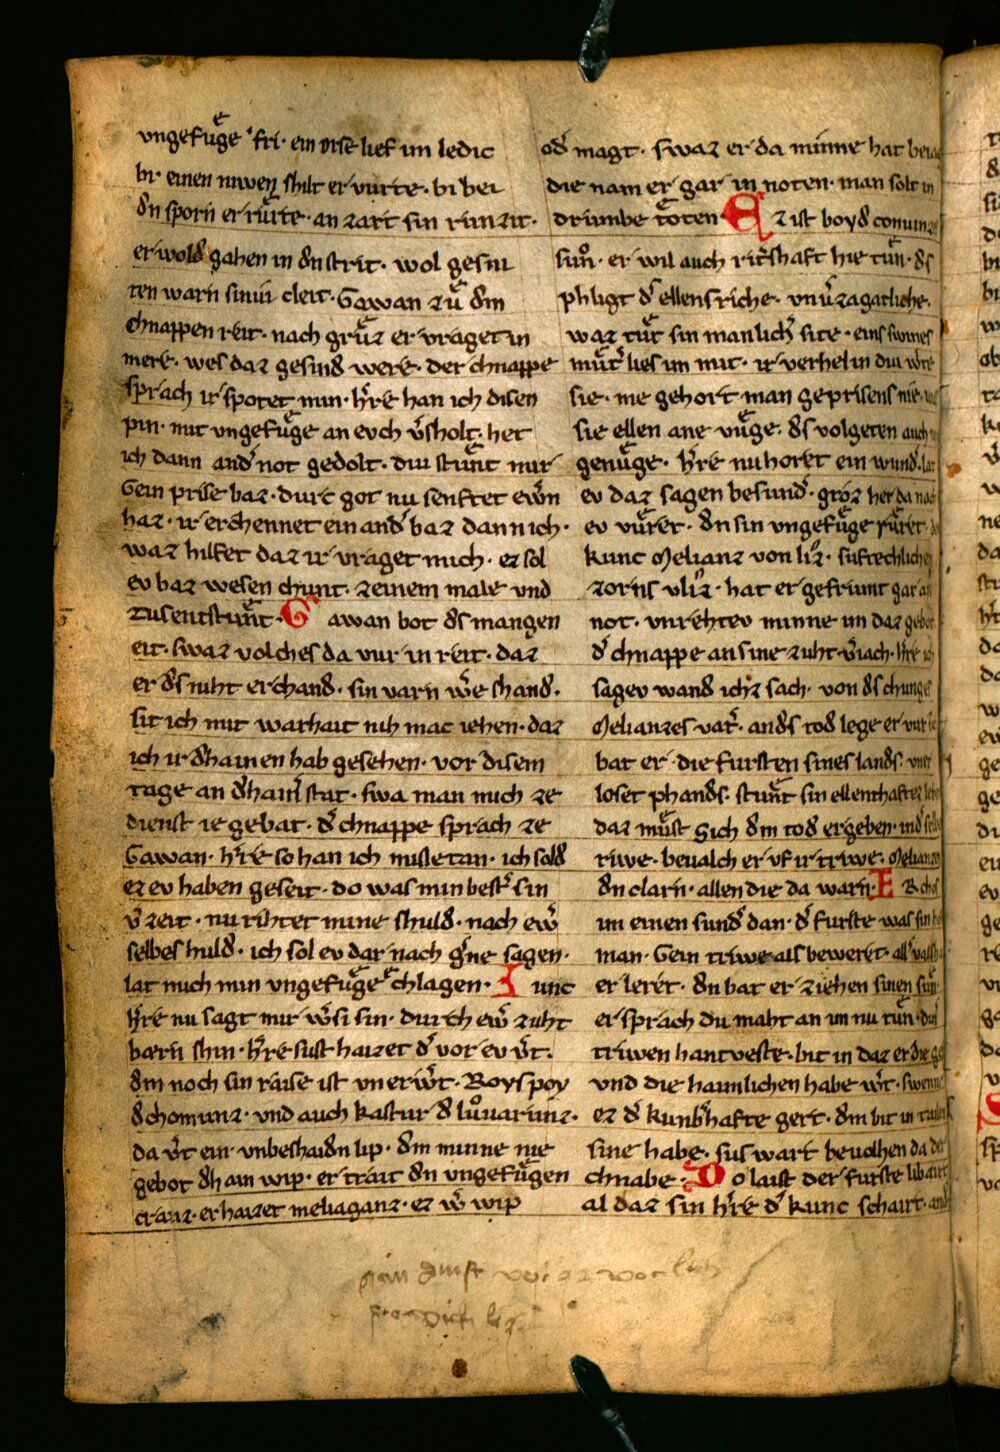 vngefuͤge fri· ein orse lief im ledic
bi· einen niwen shilt er vurte· bi bei
dn sporn er ruͤrte· an zart sin runzit·
er wold gahen in dn strit· wol gesni
ten warn siniv cleit· Gawan zuͦ dem
chnappen reit· nach gruͤz er vraget in
mere· wes daz gesind were· der chnappe
sprach ir spotet min· hˀre han ich disen
pin· mit vngefuͤge an evch vˀsholt· het
ich dann andˀ not gedolt· div stuͤnt mir
Gein prise baz· durt got nu senftet ewˀn
haz· ir erchennet ein andˀ baz dann ich·
waz hilfet daz ir vraget mich· ez sol
ev baz wesen chunt· zeinem male vnd
tusentstunt· Gawan bot ds mangen
eit· swaz volches da vur in reit· daz
er ds niht erchand· sin varn wˀe shand·
sit ich mit warhait nih mac iehen· daz
ich ir dhainen hab gesehen· vor disem
tage an dˀhainˀ stat· swa man mich ze
dienst ie gebat· dˀ chnappe sprach ze
Gawan· hˀre so han ich missetan· ich sold
ez ev haben geseit· do was min bestˀ sin
vˀzeit· nu rihtet mine shuld· nach ewˀ
selbes huld· ich sol ev dar nach gˀne sagen·
lat mich min vngefuͤge chlagen· Iunc
hˀre nu sagt mir wˀ si sin· durch ewˀ zuht
bærn shin· hˀre sust haizet dˀ vor ev vˀt·
dm noch sin raise ist vnerwˀt· Roys poy
dˀchomunz· vnd auch kastur d luͦuarunz·
da vˀt ein vnbeshaidn lip· dm minne nie
gebot dhain wip· er trait dn vngefuͤgen
cranz· er haizet meliaganz· ez wˀ wip
odˀ magt· swaz er da minne hat
die nam er gar in noten· man solt in
drumbe toͤten· Ez ist boyd
suͦn· er wil auch ritˀshaft hie tuͤn· ds
phligt dˀ ellens riche· vnvˀzagatliche·
waz tuͤt sin manlichˀ site· eins swines
muͤtˀ lief im mit· ir verhelin div
sie· nie gehort man geprisens nie·
sie ellen ane vuͤge· ds volgeten auch
genuͤge· hˀre nu horet ein wundˀ· lat
ev daz sagen besundˀ· groz her da nach
ev vuͤret· dn sin vngefuͤge ruͤret·
kunc Melianz von liz· suftechlichen
zorns vliz· hat er gefriumt gar an
not· vnrehtev minne im daz gebot·
dˀ chnappe an sine zuht vˀiach· hˀre ich
sagev wand ichz sach· von ds chunges
Melianzes vatˀ· an ds tod lege er vur
bat er die fursten sines lands·
loset phands· stuͤnt sin ellenthaftez
daz muͤst sich dm tod ergeben· ind
riwe· bevalch er vf ir triwe· Melianzen
dn clarn· allen die da warn· Er chos
im einen sundˀ dan· dˀ furste was sin
man· Gein triwe als beweret·
er leret· dn bat er ziehen sinen suͤn
er sprach du maht an im nu tuͤn·
triwen hantveste· bit in daz er die
vnd die haimlichen habe wˀt·
ez dˀ kunbˀhafte gert· dm bit in
sine habe· sus wart bevolhen da der
chnabe· Do laist der furste
al daz sin hˀre dˀ kunc schavt·